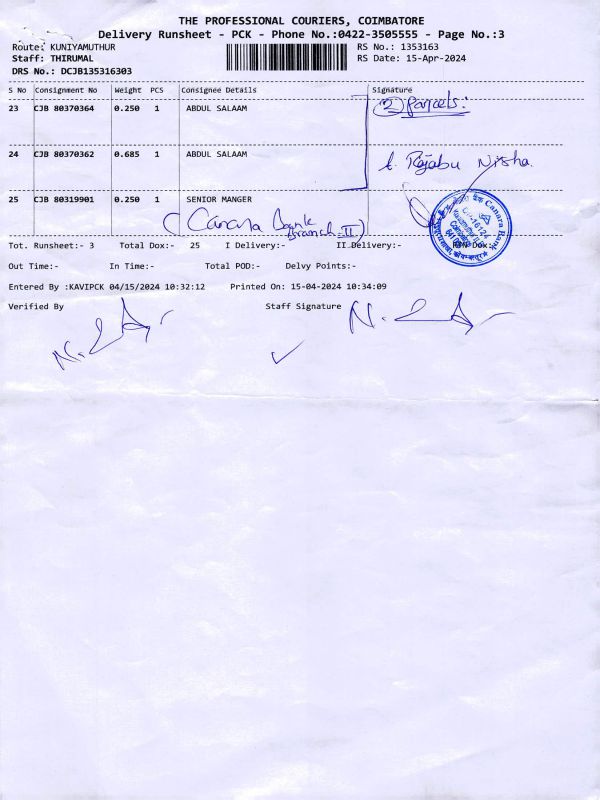 THE PROFESSIONAL COURIERS, COIMBATORE
Delivery Runsheet - PCK - Phone No.:0422-3505555 - Page No.:3
Route: KUNIYAMUTHUR
RS No.: 1353163
Staff: THIRUMAL
RS Date: 15-Apr-2024
DRS No.: DCJB135316303
S No Consignment No Weight PCS Consignee Details Signature
23 CJB 80370364 0.250 1 ABDUL SALAAM
2 Parcels:
24 CJB 80370362 0.685 1 ABDUL SALAAM
Rajabu Nisha.
25 CJB 80319901 0.250 1 SENIOR MANGER
(Canara Bank
Branch-II)
Canara Bank
Tot. Runsheet:- 3 Total Dox:- 25 I Delivery:- II Delivery:- Dox:-
Out Time:- In Time:- Total POD:- Delvy Points:-
Entered By :KAVIPCK 04/15/2024 10:32:12 Printed On: 15-04-2024 10:34:09
Verified By Staff Signature